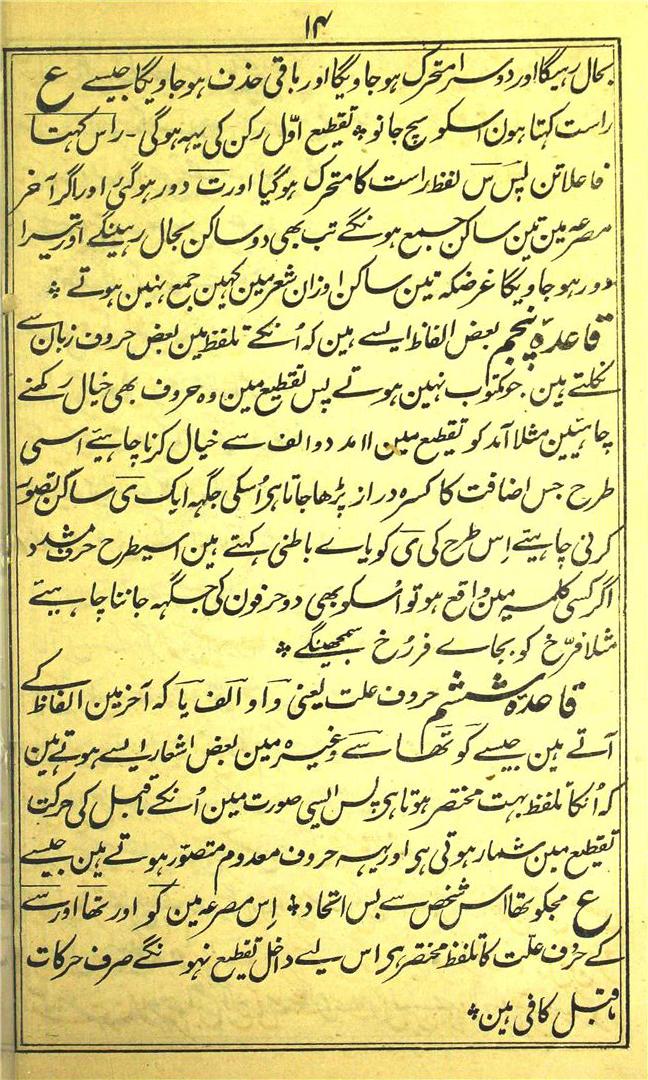 ۱۴
بحال رہیگا اور دوسرا متحرک ہو جاویگا اور باقی حذف ہو جاویگا جیسے ع
راست کہتا ہون اسکو سچ جانو ٭ تقطیع اوّل رکن کی یہہ ہوگی ۔ راس کہتا
فاعلاتن پس س لفظ راست کا متحرک ہو گیا اور ت دور ہو گئی اور اگر آخر
مصرعہ مین تین ساکن جمع ہونگے تب بھی دو ساکن بحال رہینگے اور تیسرا
دور ہو جاویگا غرضکہ تین ساکن اوزان شعر مین کہین جمع نہین ہوتے ٭
قاعدہ پنجم بعض الفاظ ایسے ہین کہ اُنکے تلفظ مین بعض حروف زبان سے
نکلتے ہین جو مکتوب نہین ہوتے پس تقطیع مین وہ حروف بھی خیال رکھنے
چاہئیین مثلا آمد کو تقطیع مین اامد دو الف سے خیال کرنا چاہیے اسی
طرح جس اضافت کا کسرہ دراز پڑھا جاتا ہی اُسکی جگہہ ایک ی ساکن تصور
کرنی چاہیئے اِس طرح کی ی کو یاے باطنی کہتے ہین اسیطرح حرف مشدد
اگر کسی کلمہ مین واقع ہو تو اُسکو بھی دو حرفون کی جگہہ جاننا چاہیئے
مثلا فرّخ کو بجاے فررُخ سمجھینگے ٭
قاعدہ ششم حروف علت یعنی واو الف یا کہ آخر مین الفاظ کے
آتے ہین جیسے کو تھا سے وغیرہ مین بعض اشعار ایسے ہوتے ہین
کہ اُنکا تلفظ بہت مختصر ہوتا ہی پس ایسی صورت مین اُنکے ماقبل کی حرکت
تقطیع مین شمار ہوتی ہی اور یہہ حروف معدوم متصوّر ہوتے ہین جیسے
ع مجکو تھا اس شخص سے بس اتحاد ٭ اِس مصرعہ مین کو اور تھا اور سے
کے حرُوف علّت کا تلفظ مختصر ہی اس لیے داخل تقطیع نہونگے صرف حرکات
ماقبل کافی ہین ٭